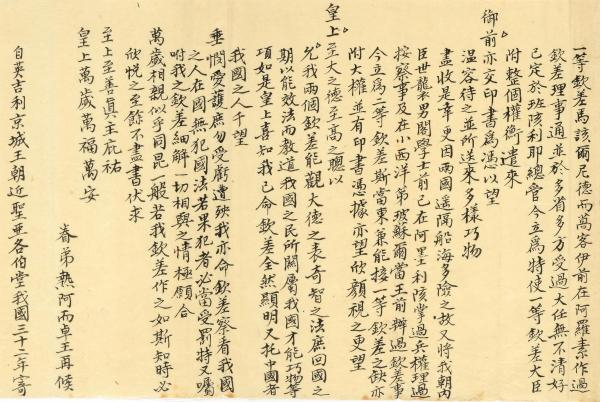 一等欽差馬該爾尼德而萬客伊前在阿羅素作過
欽差理事通並於多省多方受過大任無不清好
已定於班陔利耶總管今立為特使一等欽差大臣
附整個權衡遣來
御前亦交印書為馮以望
溫容待之並所送來多樣巧物
盡收是幸更因兩國遥隔船海多險之故又將我朝內
臣世襲男閣學士前已在阿墨利陔掌過兵權理過
按察事及在小西洋弟玻蘇爾當王前辦過欽差事
今立為二等欽差斯當東兼能接一等欽差之缺亦
附大權並有印書憑據亦望欣顏視之更望
皇上至大之德至高之聰以
允我兩個欽差能觀大德之表奇智之法庶回國之
期以能效法而教道我國之民所關屬我國才能巧物等
項如是皇上喜知我已命欽差全然顯明又托中國者
我國之人千望
垂憫愛護庶勿受虧遭殃我亦命欽差察看我國
之人在國無犯國法若果犯者必當受罰特又囑
咐我之欽差細解一切相與之情極願合
萬歲相親似乎同昆一般若我欽差作之如斯知時必
欣悅之至餘不盡書伏求
至上至善真主庇祐
皇上萬歲萬福萬安
眷弟熱阿而卓王再候
自英吉利京城王朝近聖亚各伯堂我國三十二年寄